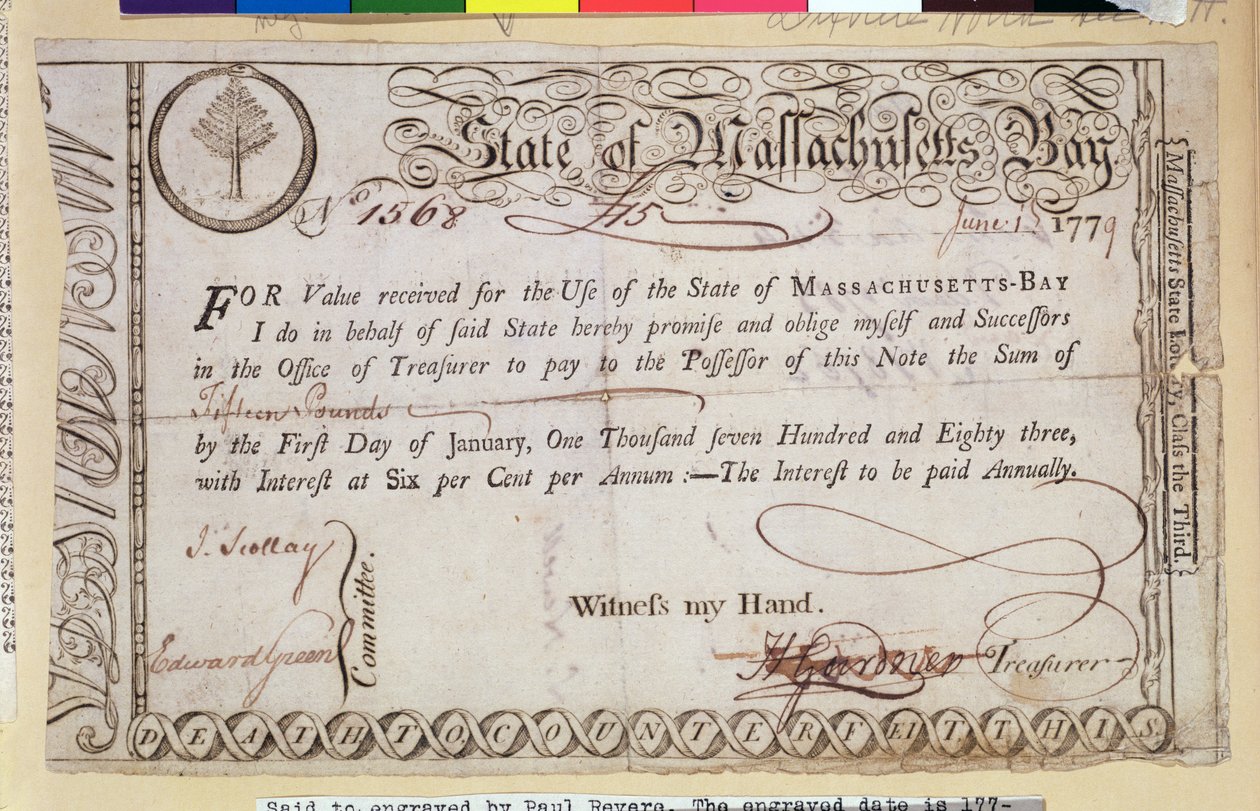 State of Maſſachuſetts Bay
No 1568 £15 June 1st 1779
FOR Value received for the Uſe of the State of MASSACHUSETTS-BAY
I do in behalf of ſaid State hereby promiſe and oblige myſelf and Succeſſors
in the Office of Treaſurer to pay to the Poſſeſſor of this Note the Sum of
Fifteen Pounds
by the Firſt Day of January, One Thouſand ſeven Hundred and Eighty three,
with Intereſt at Six per Cent per Annum :—The Intereſt to be paid Annually.
J. Scollay
Edward Green
Committee.
Witneſs my Hand.
H Gardner Treaſurer
DEATH TO COUNTERFEIT THIS.
Maſſachuſetts State Lottery, Claſs the Third.
Said to engraved by Paul Revere. The engraved date is 177-